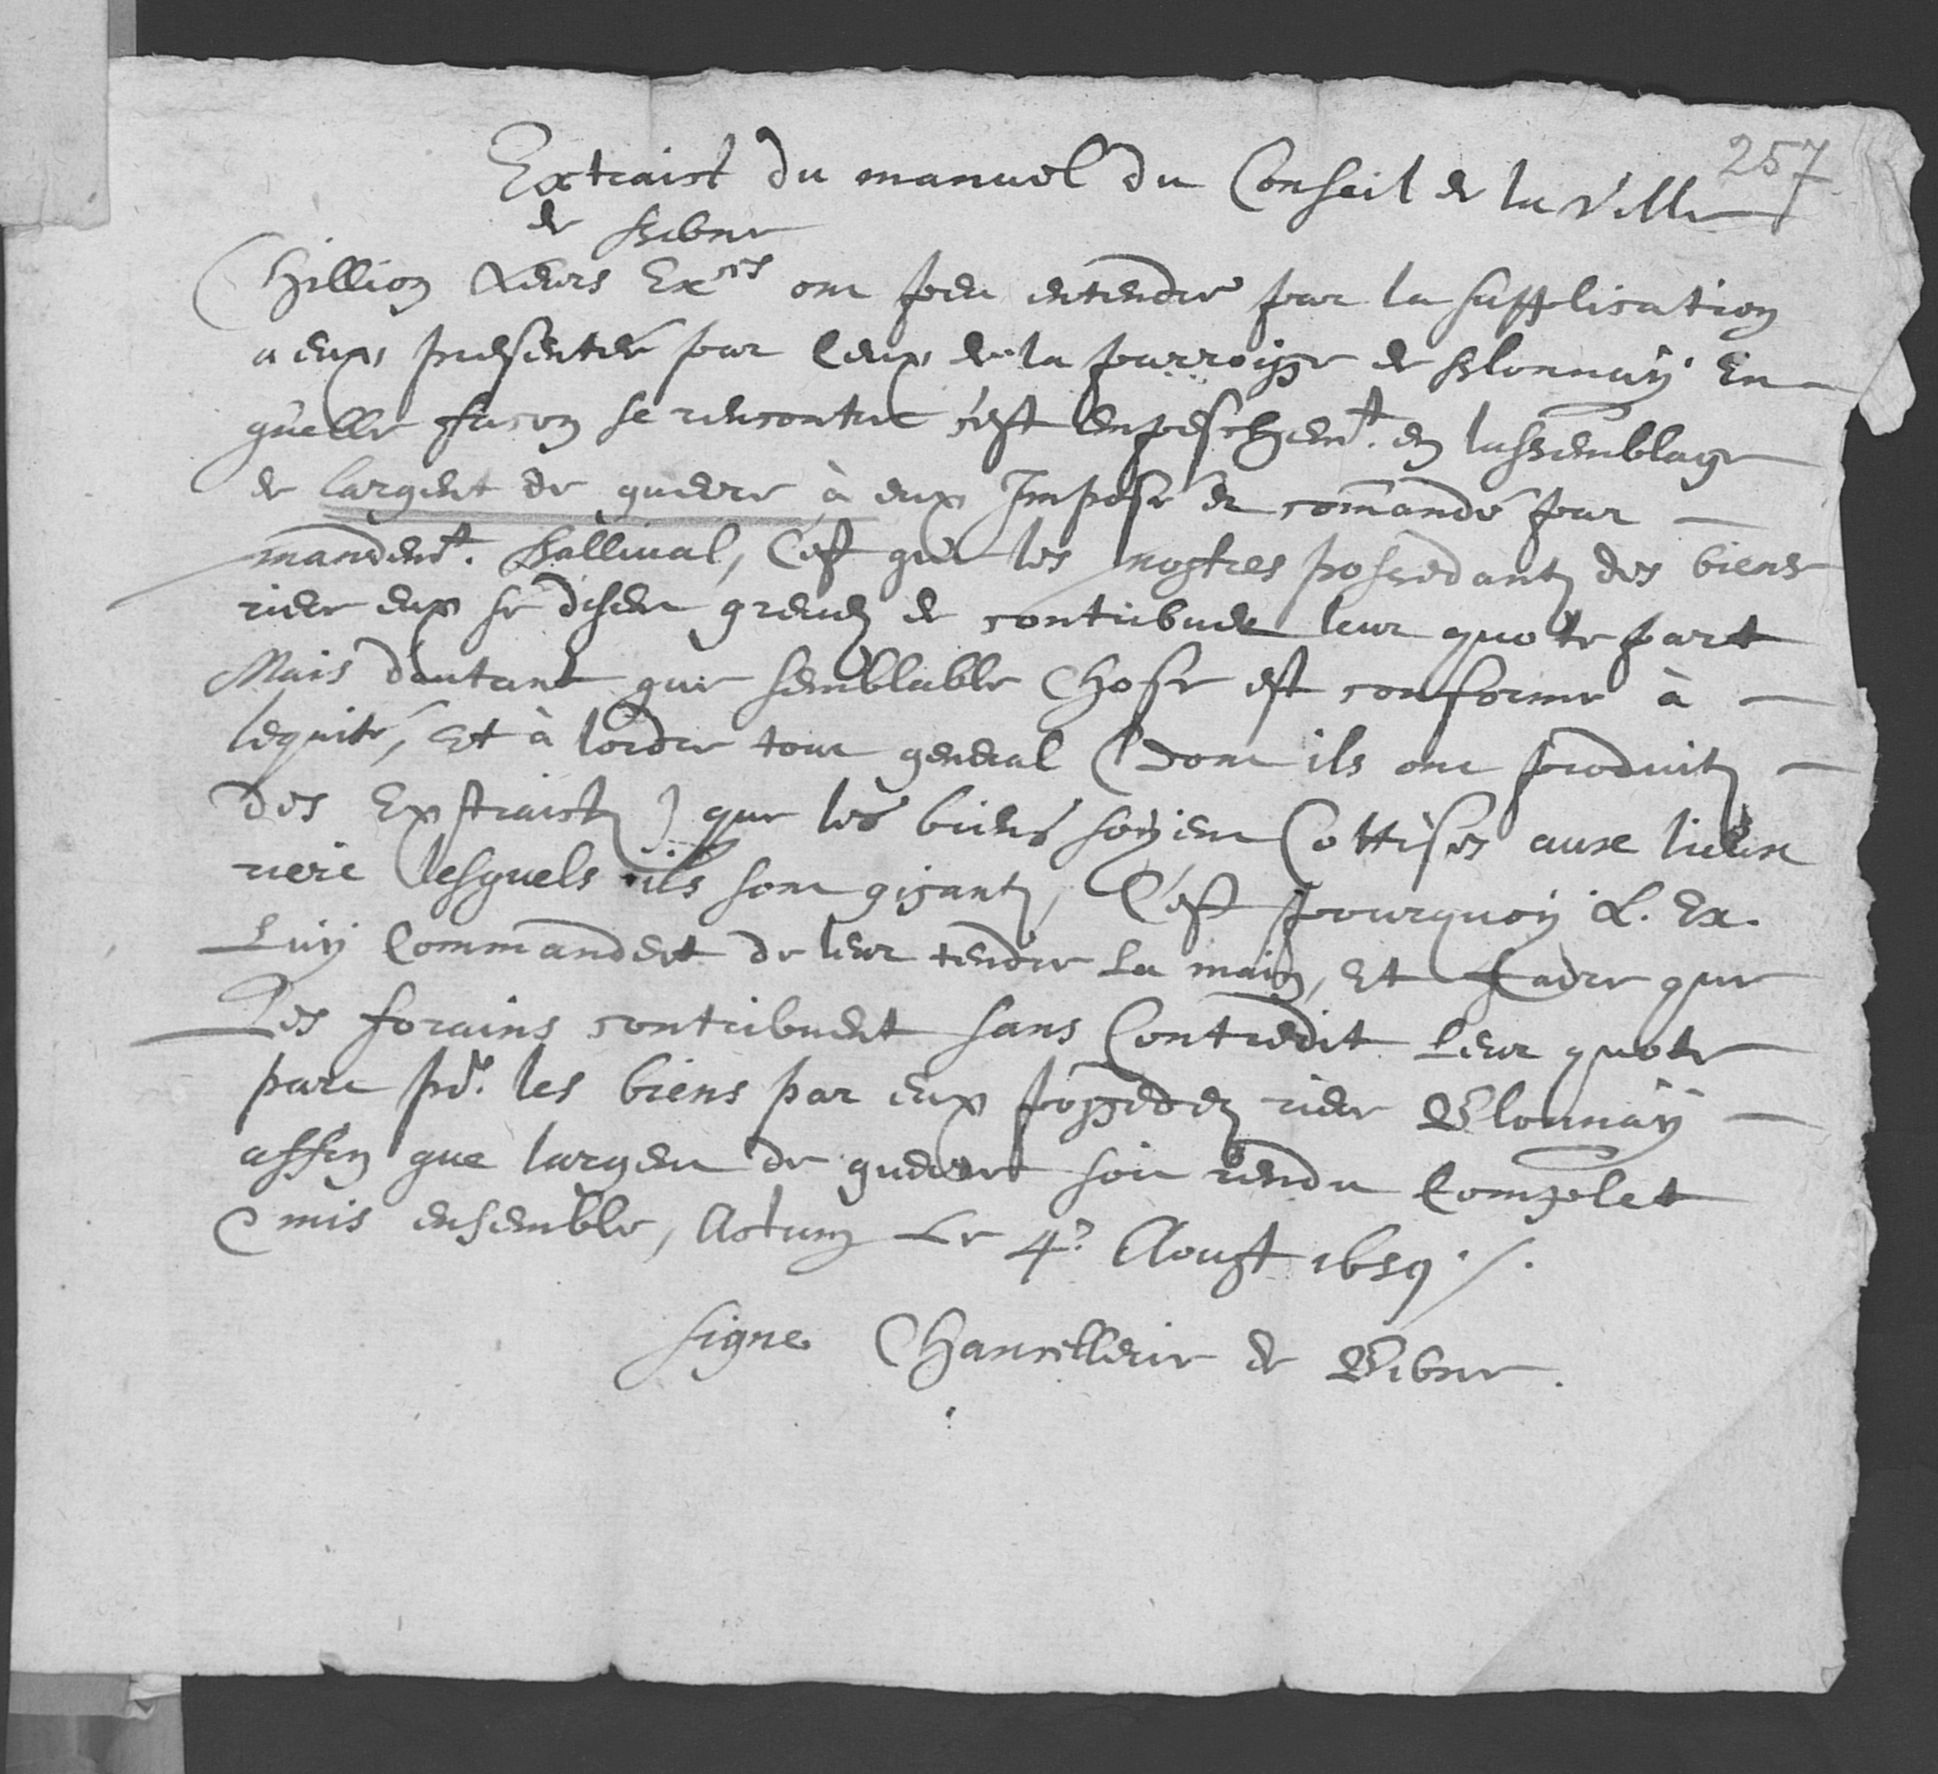 257
Extraict du manuel du Conseil de la Ville
de Berne
Chillion Leurs Ex.ces ont peu entendre par la supplication
a eux presentée par Ceux de la parroisse de Blonnay En
quelle facon se rencontre c'est empeschem.t en lassemblage
de largent de guerre à eux Imposé et comandé par
mandem.t Ballival, C'est que les nostres possedants des biens
riere eux se disent grevez de contribuer leur quote part
Mais dautant que semblable Chose est conforme à
lequité, Et à lordre tout general (dont ils ont produits
des Extraicts) que les biens soyent Cottises aux lieux
riere lesquels ils sont gisants, C'est pourquoy L. Ex.
Luy Commandent de leur tendre La main, Et faire que
Les forains contribuent sans Contredit Leur quote
part po.r les biens par eux possedez riere Blonnay
affin que largent de guerre soit rendu Complet
mis ensemble, Actum Le 4.e Aoust 1659 /.
signe Chancellerie de Berne.